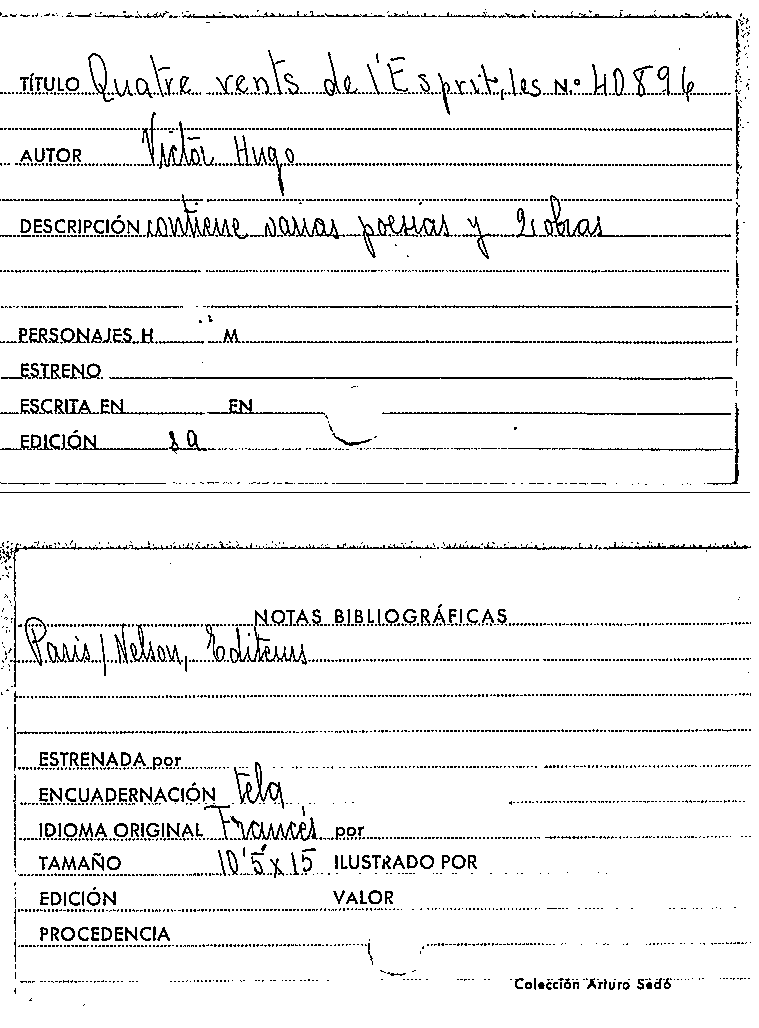 TÍTULO Quatre vents de l'Esprit, les N.º 40896
AUTOR Victor Hugo
DESCRIPCIÓN contiene varias poesías y 2 obras
PERSONAJES H M
ESTRENO
ESCRITA EN EN
EDICIÓN
NOTAS BIBLIOGRÁFICAS
Paris / Nelson, Editeurs
ESTRENADA por
ENCUADERNACIÓN tela
IDIOMA ORIGINAL Francés por
TAMAÑO 10'5 x 15 ILUSTRADO POR
EDICIÓN VALOR
PROCEDENCIA
Colección Arturo Sedó